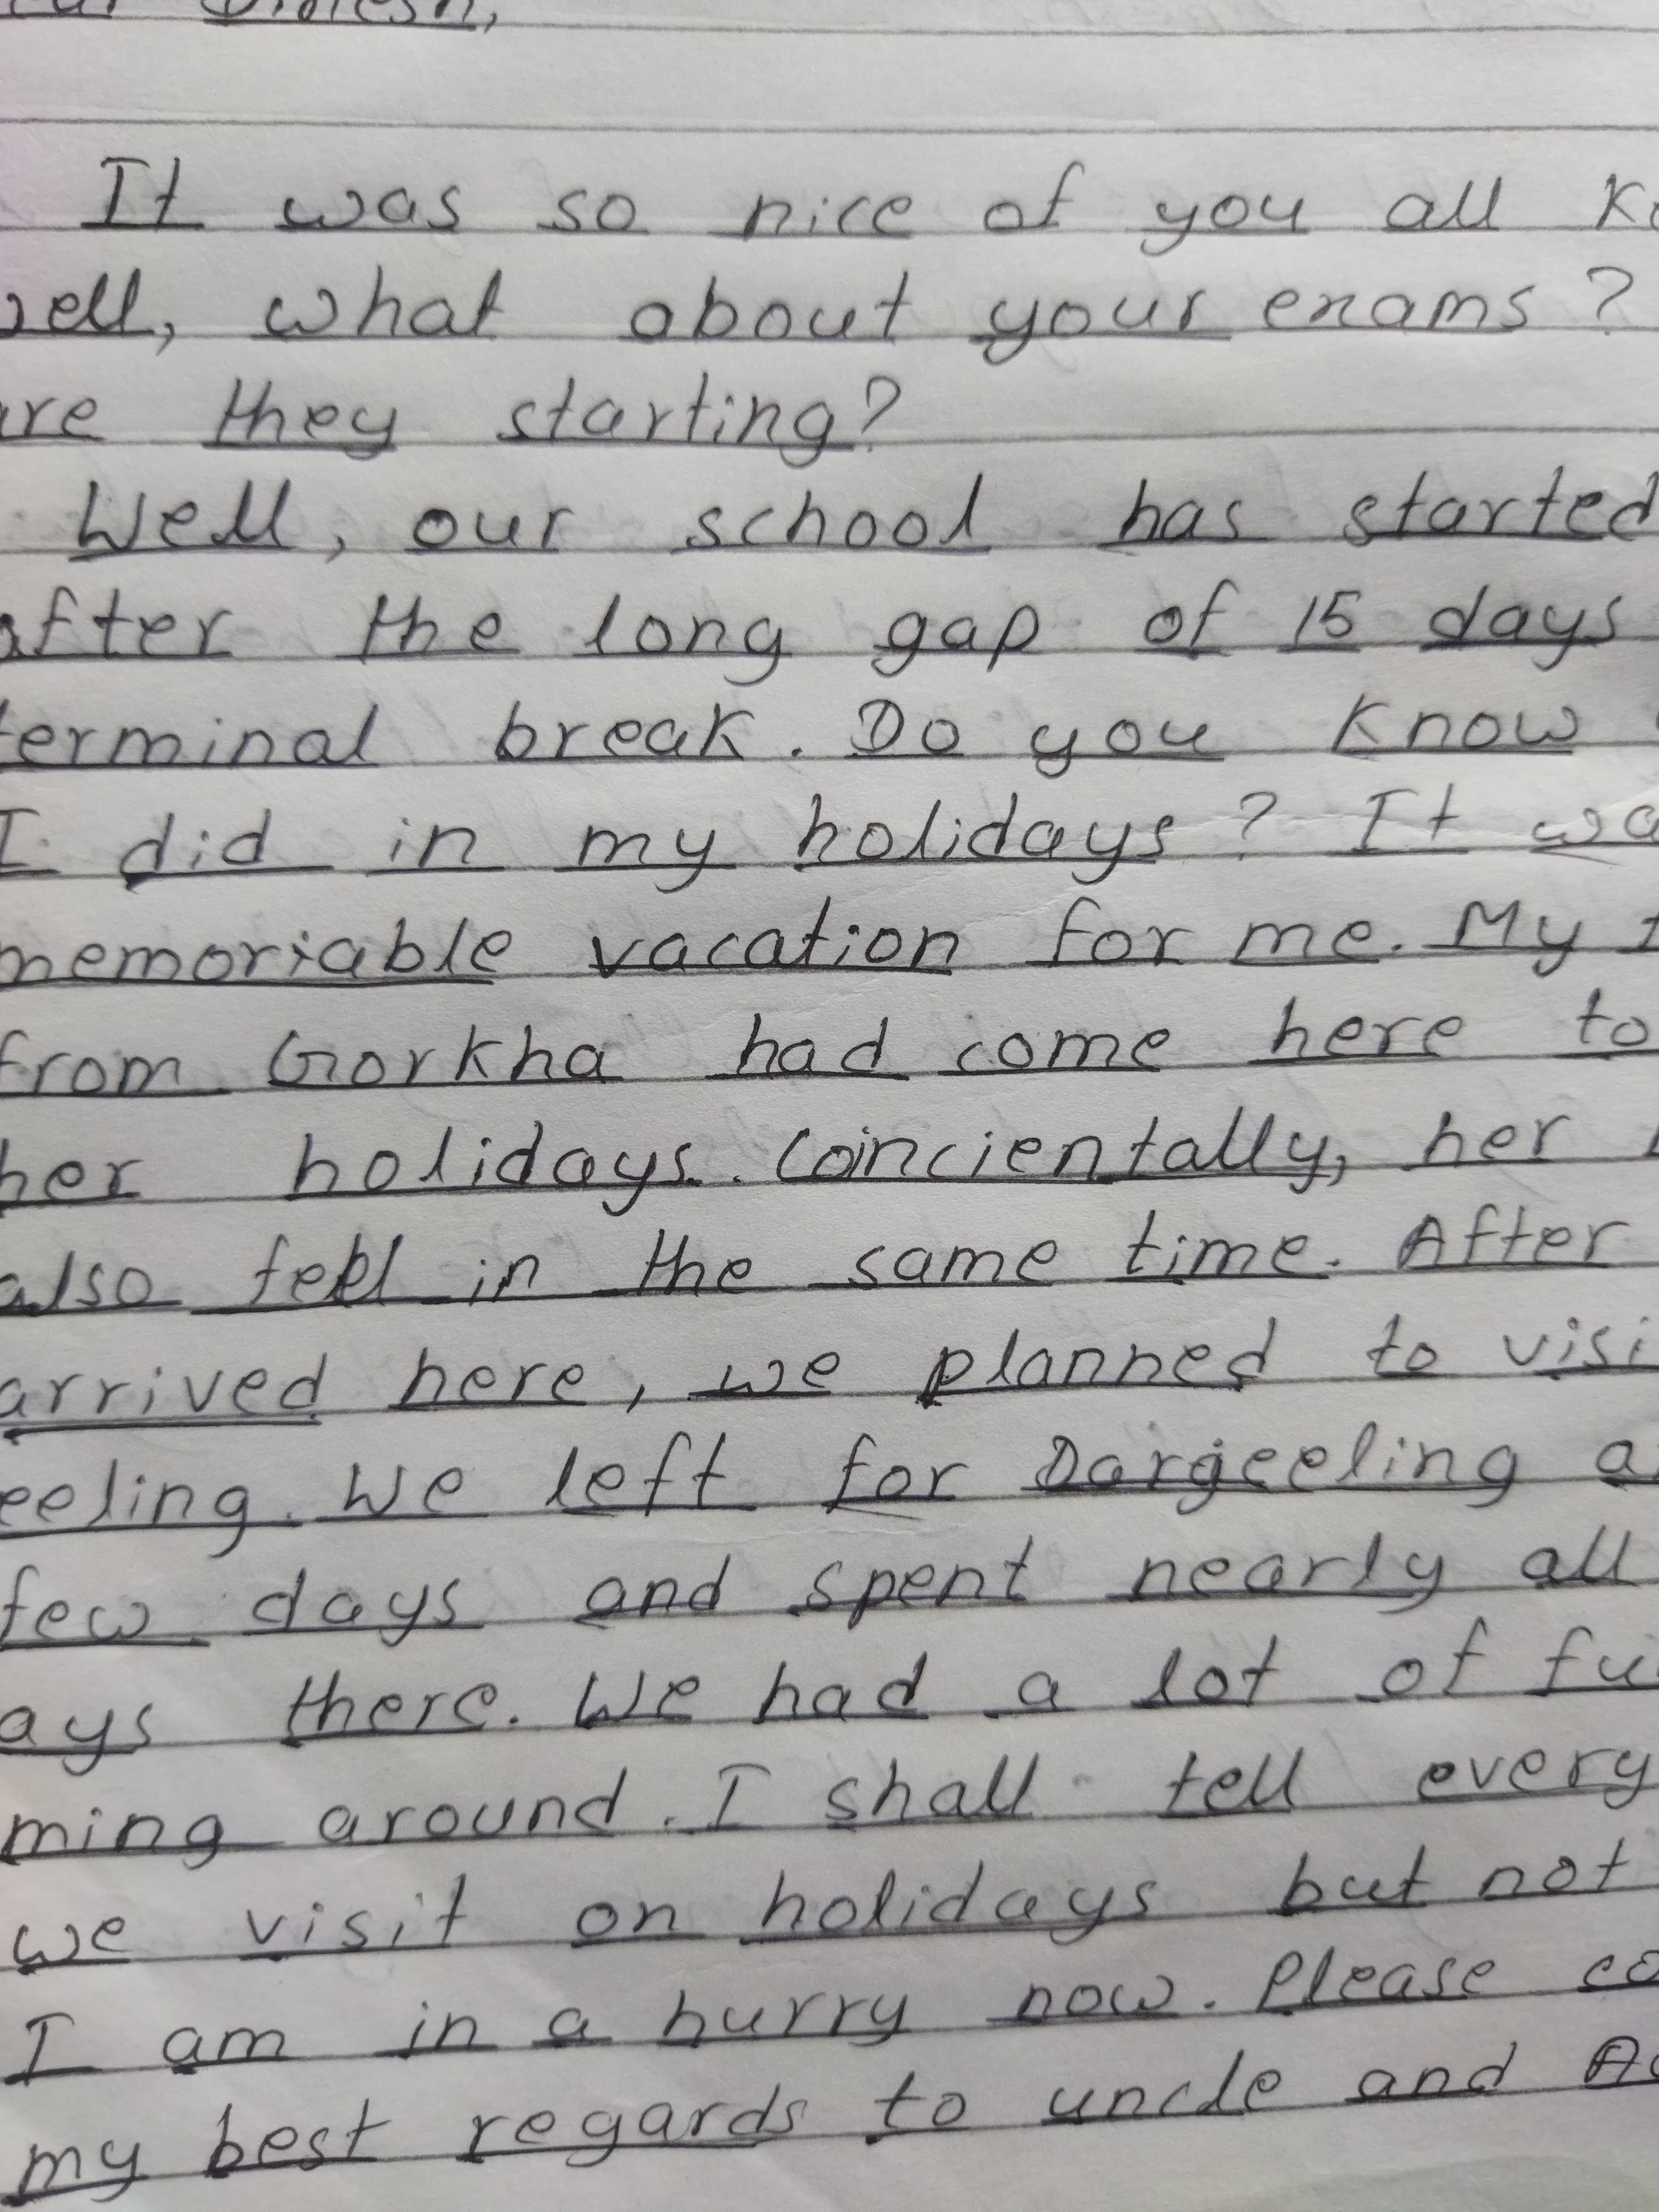 It was so nice of you all
what about your exams?
they starting?
Well, our school has started
after the long gap of 15 days
terminal break. Do you know
I did in my holidays? It
memoriable vacation for me. My
from Gorkha had come here to
her holidays. Coincientally, her
also fell in the same time. After
arrived here, we planned to
eeling. We left for Dargeeling
few days and spent nearly all
ays there. We had a lot of
ming around. I shall tell every
we visit on holidays but not
I am in a hurry now. Please
my best regards to uncle and